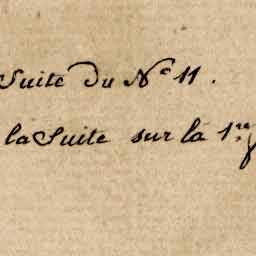 Suite du N.º 11.
la Suite sur la 1.re